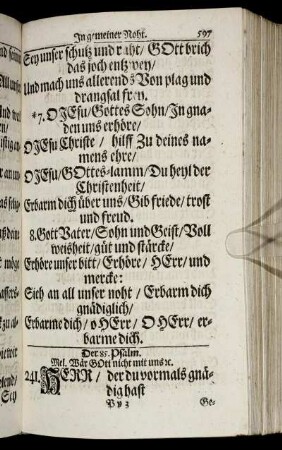 In gemeiner Noht. 597
Sey unser schutz und raht/ GOtt brich
das joch entzwey/
Und mach uns allerends Von plag und
drangsal frey.
*7. O JEsu/ Gottes Sohn/ In gna-
den uns erhöre/
O JEsu Christe/ hilff Zu deines na-
mens ehre/
O JEsu/ GOttes-lamm/ Du heyl der
Christenheit/
Erbarm dich über uns/ Gib friede/ trost
und freud.
8. Gott Vater/ Sohn und Geist/ Voll
weisheit/ güt und stärcke/
Erhöre unser bitt/ Erhöre/ HErr/ und
mercke:
Sieh an all unser noht/ Erbarm dich
gnädiglich/
Erbarme dich/ o HErr/ O HErr/ er-
barme dich.
Der 85. Psalm.
Mel. Wär GOtt nicht mit uns ꝛc.
241. HERR/ der du vormals gnä-
dig hast
Ge-